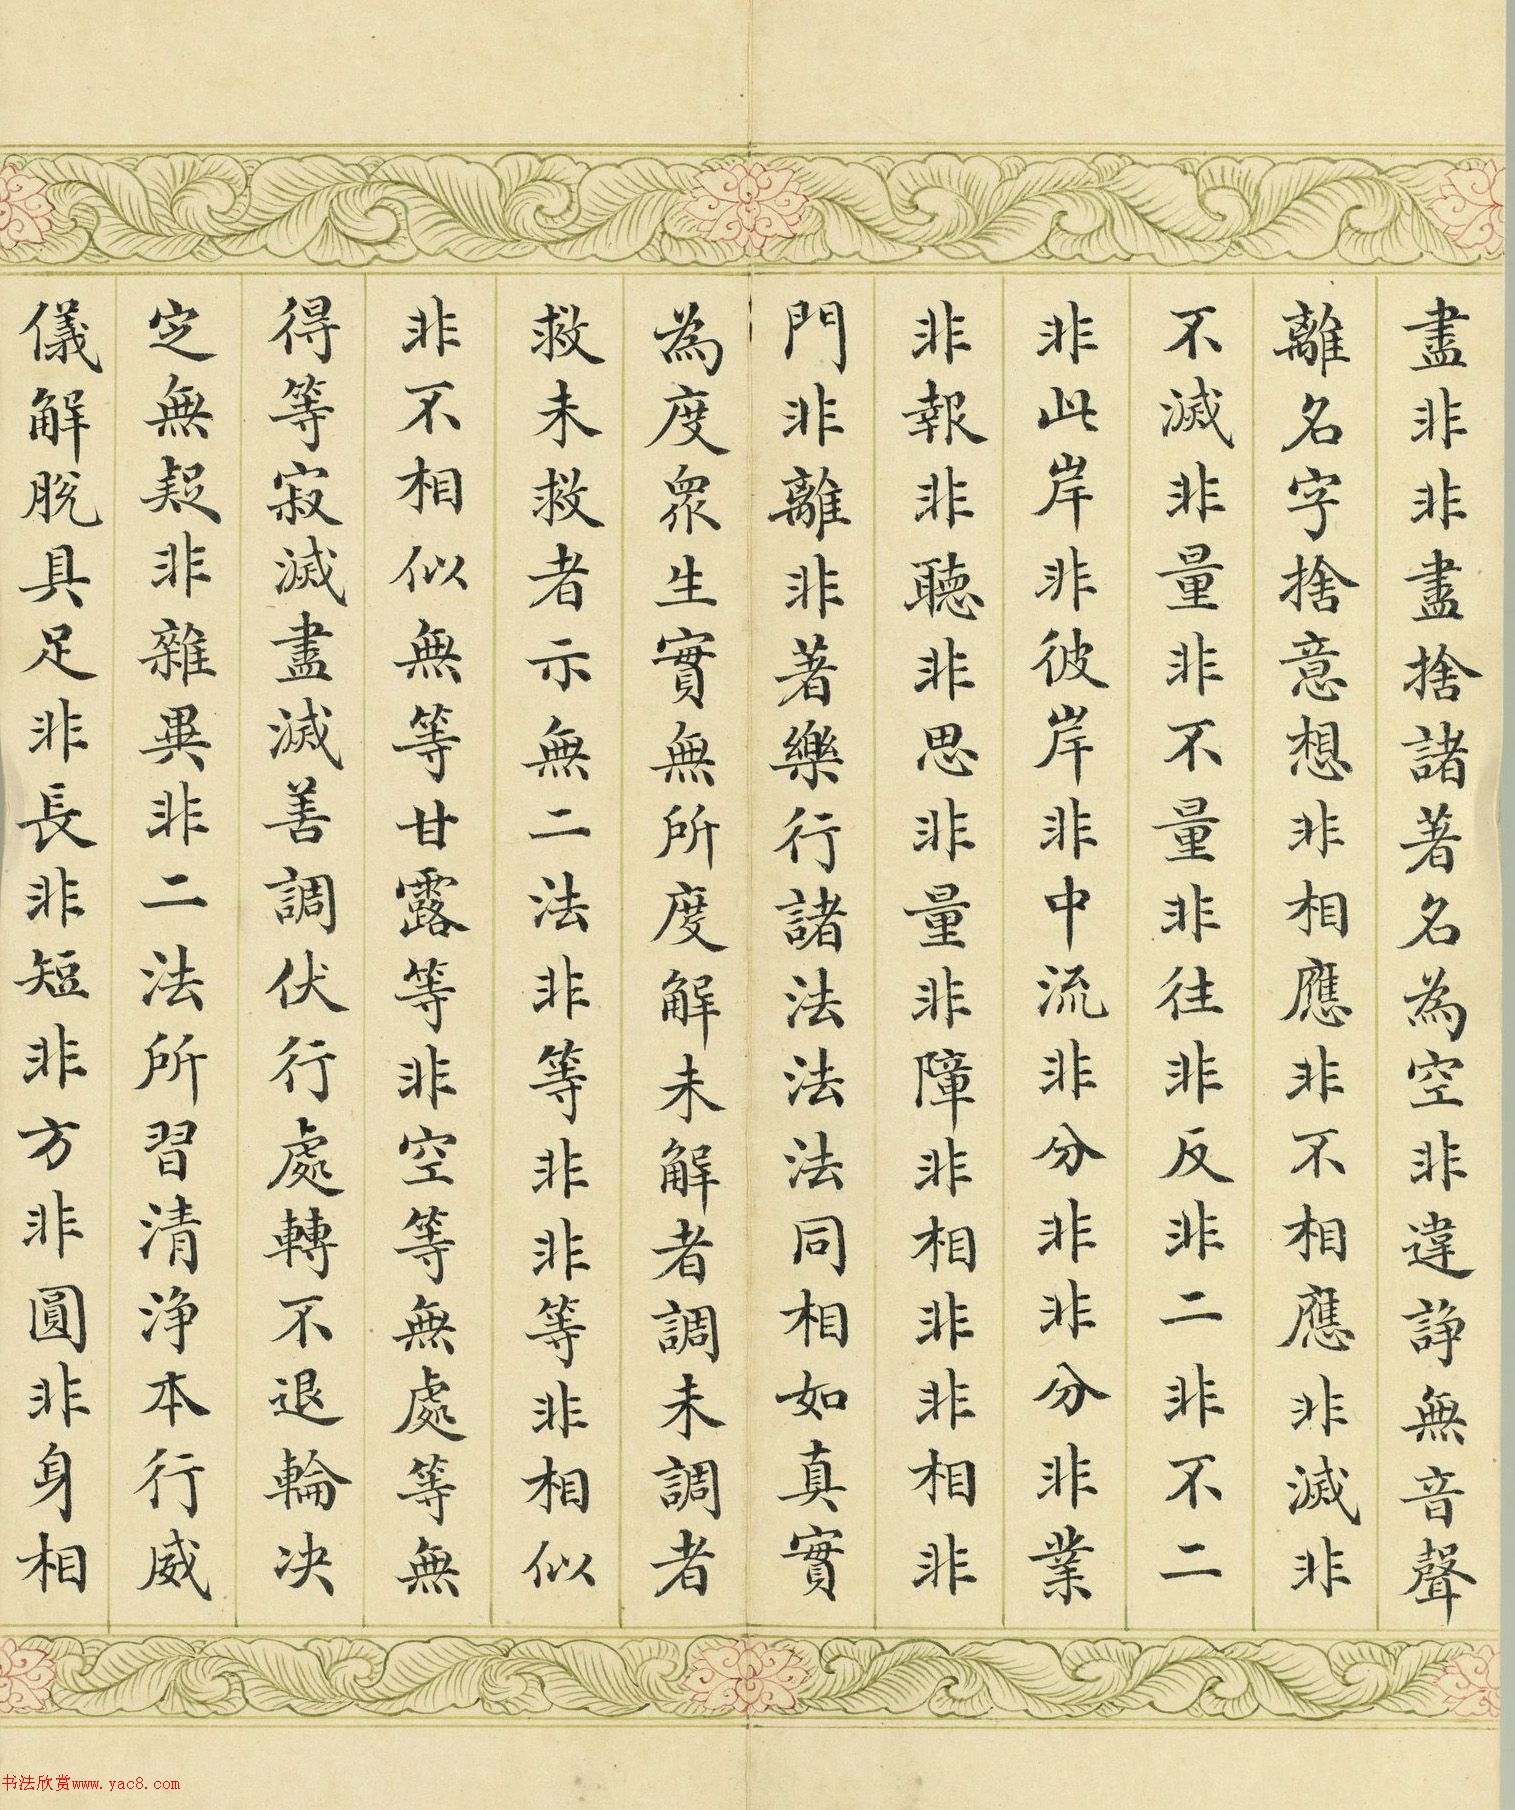 盡非非盡捨諸著名為空非違諍無音聲
離名字捨意想非相應非不相應非滅非
不滅非量非不量非往非反非二非不二
非此岸非彼岸非中流非分非非分非業
非報非聽非思非量非障非相非非相非
門非離非著樂行諸法法法同相如真實
為度眾生實無所度解未解者調未調者
救未救者示無二法非等非非等非相似
非不相似無等甘露等非空等無處等無
得等寂滅盡滅善調伏行處轉不退輪決
定無疑非雜異非二法所習清淨本行威
儀解脫具足非長非短非方非圓非身相
书法欣赏www.yac8.com